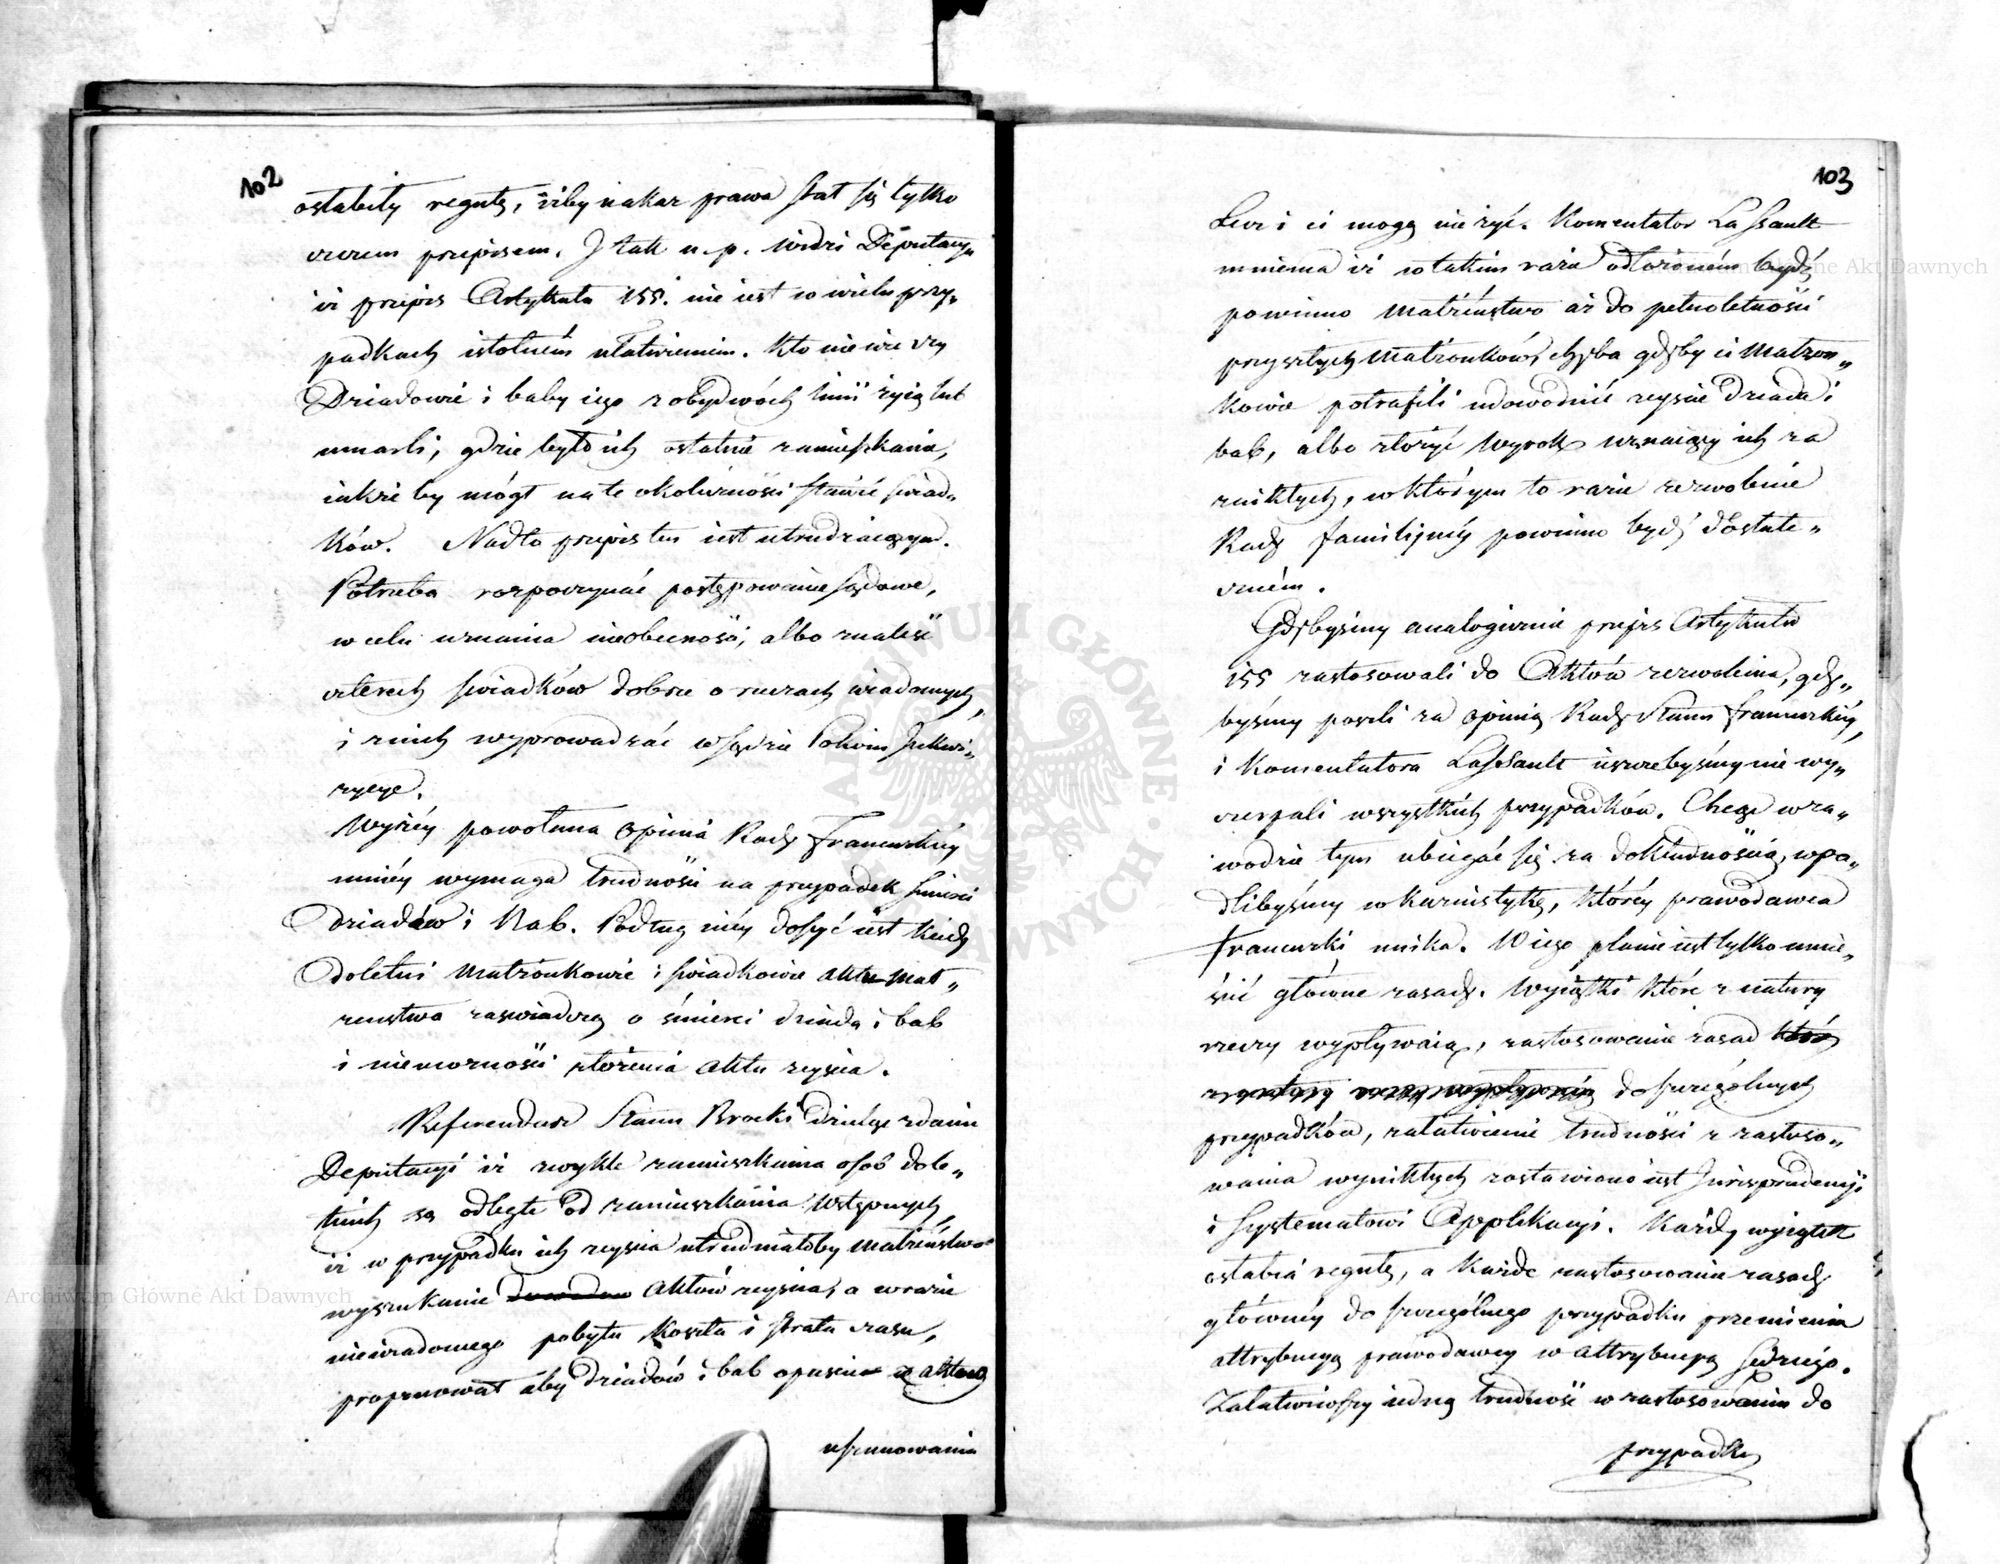 102
osłabiły regułę, iżby nakaz prawa stał się tylko
czczem przepisem. I tak n. p. widzi Deputacya
iż przepis Artykułu 155. nie iest w wielu przy„
padkach istotném ułatwieniem. Kto nie wie czy
Dziadowie i baby iego z obydwóch linii żyią lub
umarli, gdzie było ich ostatnie zamieszkanie,
iakże by mógł na te okoliczności stawić świad„
ków. Nadto przepis ten iest utrudzaiącym.
Potrzeba rozpoczynać postępowanie sądowe,
w celu uznania nieobecności, albo znaleść
czterech świadków dobrze o rzeczach wiadomych,
i z nich wyprowadzać w Sądzie Pokoiu Inkwi„
zycye.
Wyżéy powołana Opinia Rady Francuzkiéy
mniéy wymaga trudności na przypadek śmierci
Dziadów i Bab. Podług niéy dosyć iest kiedy
Doletni Małżonkowie i świadkowie aktu Mał„
żeństwa zaświadczą o śmierci dziada i bab
i niemożności złożenia aktu zeyścia.
Referendarz Stanu Brocki dzieląc zdanie
Deputacyi iż zwykle zamieszkania osób dole„
tnich są odległe od zamieszkania Wstępnych,
iż w przypadku ich zeyścia utrudniałoby Małżeństwo
wyszukanie dowodów Aktów zeyścia, a w razie
niewiadomego pobytu koszta i strata czasu,
proponował aby dziadów i bab opuścić z aktów
uszanowania
103
Lecz i ci mogą nie żyć. Komentator Lassault
mniema iż w takim razie odłożoném bydź
powinno Małżeństwo aż do pełnoletności
przyszłych Małżonków, chyba gdyby ci Małżon„
kowie potrafili udowodnić zeyście Dziada i
bab, albo złożyć Wyrok uznaiący ich za
znikłych, w którym to razie zezwolenie
Rady familijnéy powinno bydź dostate„
czném.
Gdybyśmy analogicznie przepis Artykułu
155 zastosowali do Aktów zezwolenia, gdy„
byśmy poszli za opinią Rady Stanu francuzkiéy,
i Komentatora Lassault ieszczebyśmy nie wy„
czerpali wszystkich przypadków. Chcąc w za„
wodzie tym ubiegać się za dokładnością, wpa„
dlibyśmy w kazuistykę, któréy prawodawca
francuzki unika. W iego planie iest tylko umie„
ścić główne zasady. Wyiątki które z natury
rzeczy wypływaią, zastosowanie zasad które
z natury rzeczy wypływaią do szczególnych
przypadków, załatwienie trudności z zastoso„
wania wynikłych zostawiono iest Jurisprudencyi
i Systematowi Applikacyi. Każdy wyiątek
osłabia regułę, a każde zastosowanie zasady
głównéy do szczególnego przypadku przemienia
attrybucyą prawodawcy w attrybucyą sędziego.
Załatwiwszy iedną trudność w zastosowaniu do
przypadku
Archiwum Główne Akt Dawnych
ARCHIWUM GŁÓWNE AKT DAWNYCH